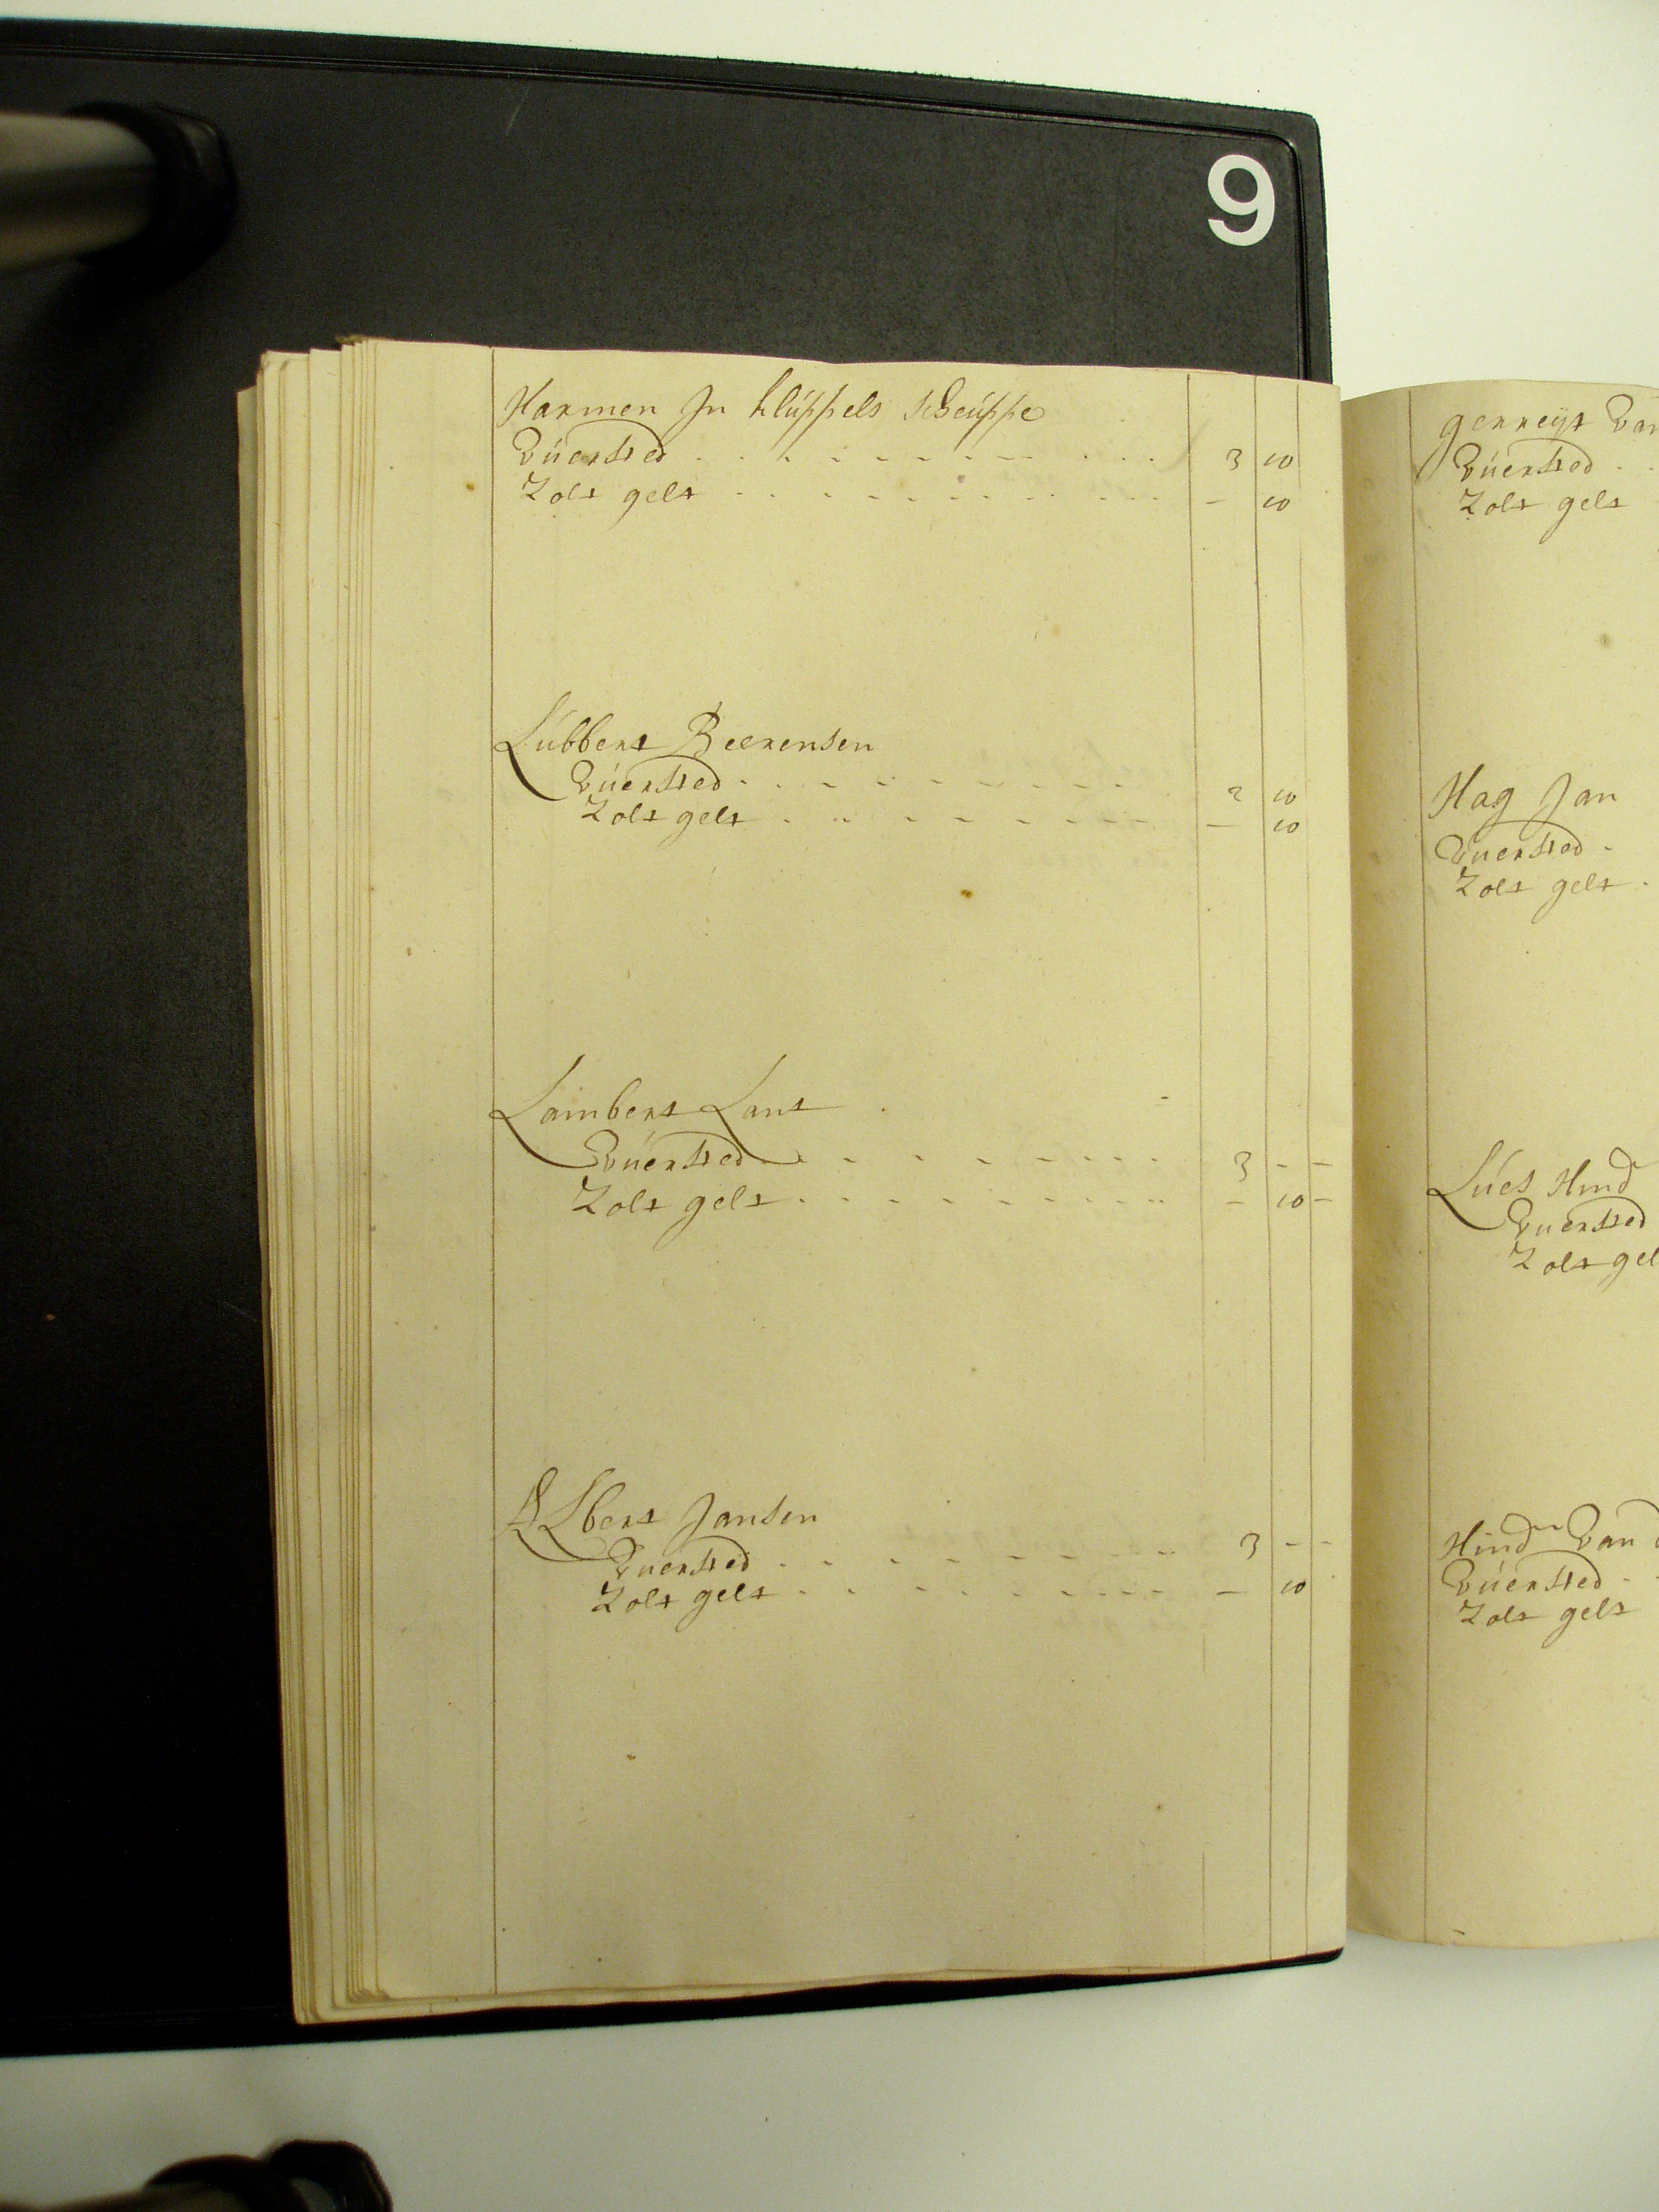 9
Harmen Jn klúppels scheúppe
Vúersted . . . . . . . . . . 3 10
Zolt gelt . . . . . . . . . . - 10
Lúbbert Beerensen
Vúersted . . . . . . . . . . 2 10
Zolt gelt . . . . . . . . . . - 10
Lambert Lant
Vúersted . . . . . . . . . . 3 - -
Zolt gelt . . . . . . . . . . - 10 -
Albert Jansen
Vuersted . . . . . . . . . . 3 - -
Zolt gelt . . . . . . . . . . - 10
gerreyt Van
Vúersted . .
Zolt gelt
Hag Jan
Vuersted -
Zolt gelt .
Lúes Hind
Vuersted
Zolt gel
Hindr Van d
Vúersted . .
Zolt gelt